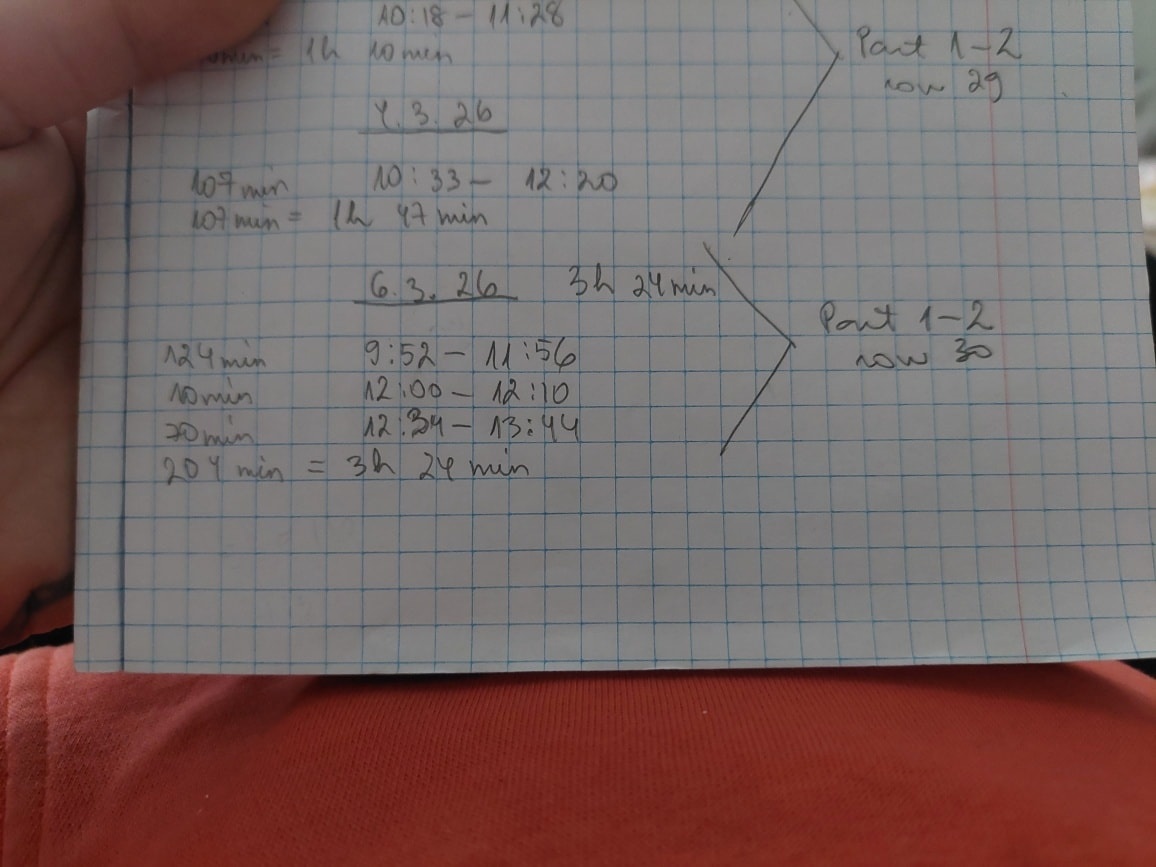 10:18 - 11:28
min = 1h 10min
Part 1-2
row 29
4.3.26
107min 10:33 - 12:20
107min = 1h 47min
6.3.26 3h 24min
Part 1-2
row 30
124min 9:52 - 11:56
10min 12:00 - 12:10
70min 12:34 - 13:44
204min = 3h 24min